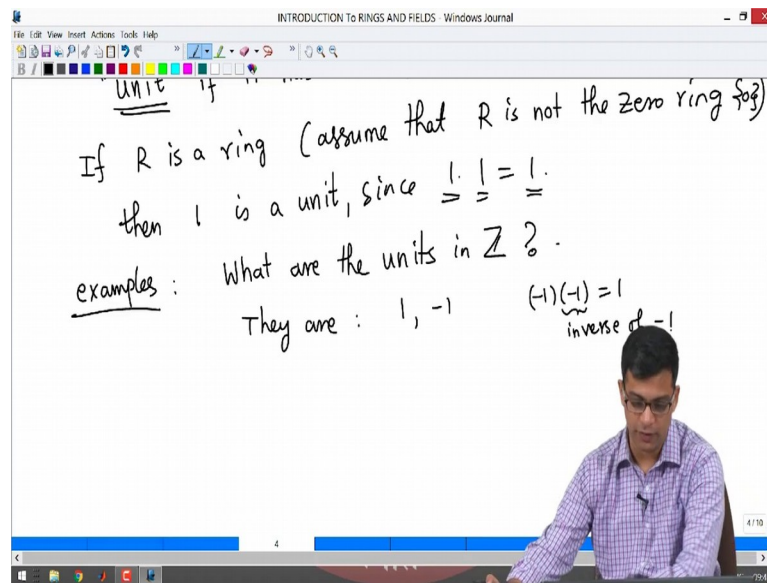 INTRODUCTION To RINGS AND FIELDS - Windows Journal
File Edit View Insert Actions Tools Help
B I
"unit" if it has
If R is a ring (assume that R is not the zero ring {0})
then 1 is a unit, since 1. 1 = 1.
examples : What are the units in ℤ ?.
They are : 1, -1
(-1)(-1) = 1
inverse of -1
4/10
4